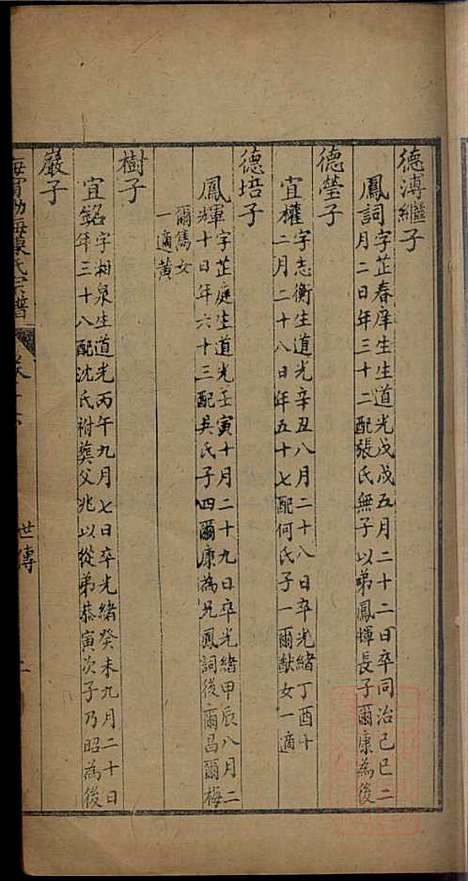 德溥繼子
鳳詞字芷春庠生生道光戊戌五月二十二日卒同治己巳二
月二日年三十二配張氏無子以弟鳳輝長子爾康為後
德瑩子
宜權字志衡生道光辛丑八月二十八日卒光緒丁酉十
二月二十八日年五十七配何氏子一爾猷女一適
德培子
鳳輝字芷庭生道光壬寅十月二十九日卒光緒甲辰八月二
十日年六十三配吳氏子四爾康為兄鳳詞後爾昌爾梅
爾雋女
一適黃
樹子
宜銘字相泉生道光丙午九月七日卒光緒癸未九月二十日
年三十八配沈氏祔葬父兆以從弟恭寅次子乃昭為後
嚴子
海寧渤海陳氏宗譜
世傳
二